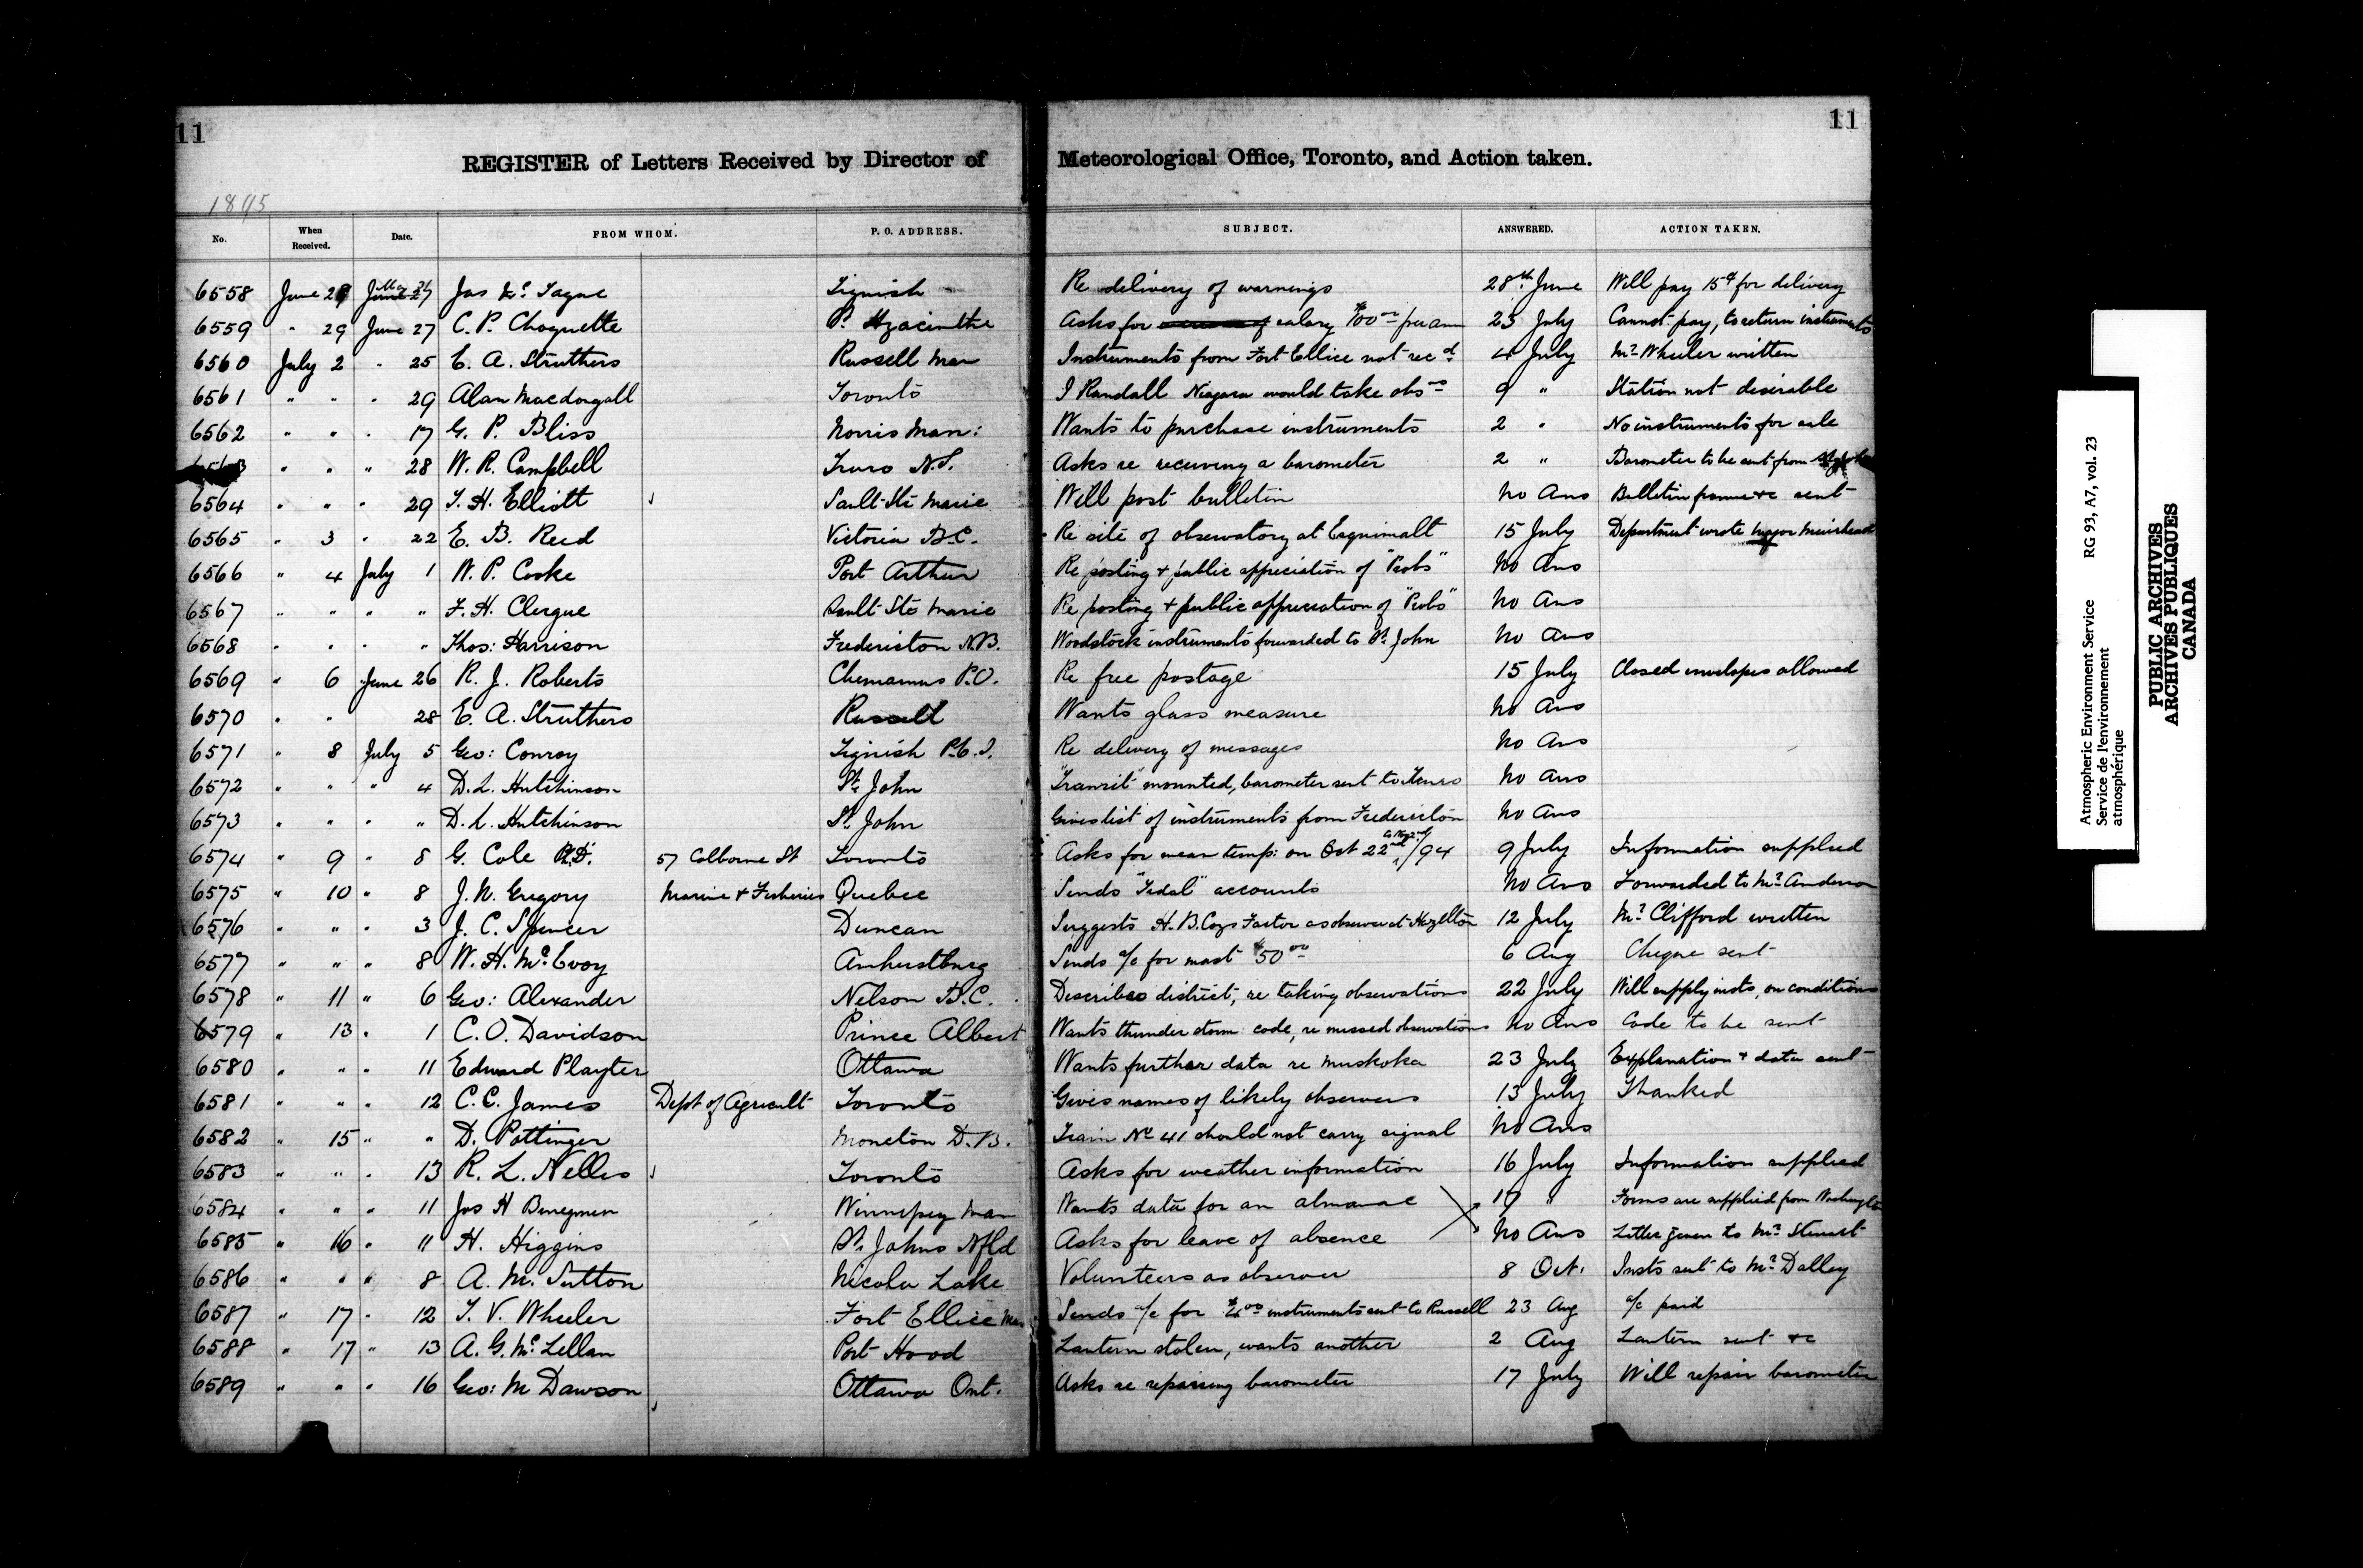 11
11
REGISTER of Letters Received by Director of Meteorological Office, Toronto, and Action taken.
1895
No. When Received. Date. FROM WHOM. P. O. ADDRESS. SUBJECT. ANSWERED. ACTION TAKEN.
6558 June 29 May 31 Jas Mc Tague Tignish Re delivery of warnings 28th June Will pay 15¢ for delivery
6559 " 29 June 27 C. P. Choquette St. Hyacinthe Asks for salary $100.00 per ann 23 July Cannot pay, to return instruments
6560 July 2 " 25 E. A. Struthers Russell Man Instruments from Fort Ellice not recd 4 July Mr Wheeler written
6561 " " " 29 Alan Macdougall Toronto I Randall Niagara would take obsns 9 " Station not desirable
6562 " " " 17 G. P. Bliss Norris Man: Wants to purchase instruments 2 " No instruments for sale
6563 " " " 28 W. R. Campbell Truro N.S. Asks re receiving a barometer 2 " Barometer to be sent from
6564 " " " 29 T. H. Elliott Sault Ste Marie Will post bulletin No Ans Bulletin frame &c sent
6565 " 3 " 22 E. B. Reed Victoria B.C. Re site of observatory at Esquimalt 15 July Department wrote Major Muirhead
6566 " 4 July 1 W. P. Cooke Port Arthur Re posting + public appreciation of "Probs" No Ans
6567 " " " " F. H. Clergue Sault Ste Marie Re posting + public appreciation of "Probs" No Ans
6568 " " " " Thos: Harrison Fredericton N.B. Woodstock instruments forwarded to St. John No Ans
6569 " 6 June 26 R. J. Roberts Chemainus P.O. Re free postage 15 July Closed envelopes allowed
6570 " " 28 E. A. Struthers Russell Wants glass measure No Ans
6571 " 8 July 5 Geo: Conroy Tignish P.E.I. Re delivery of messages No Ans
6572 " " " 4 D. L. Hutchinson St. John "Transit" mounted, barometer sent to Truro No Ans
6573 " " " " D. L. Hutchinson St. John Gives list of instruments from Fredericton No Ans
6574 " 9 " 8 G. Cole 57 Colborne St Toronto Asks for mean temp: on Oct 22nd to Nov 2nd /94 9 July Information supplied
6575 " 10 " 8 J. N. Gregory Marine + Fisheries Quebec Sends "Tidal" accounts No Ans Forwarded to Mr Anderson
6576 " " " 3 J. C. Spencer Duncan Suggests H. B. Coys Factor as observer at Hazellton 12 July Mr Clifford written
6577 " " " 8 W. H. McEvoy Amherstburg Sends a/c for mast $50.00 6 Aug Cheque sent
6578 " 11 " 6 Geo: Alexander Nelson B.C. Describes district, re taking observations 22 July Will supply insts, on conditions
6579 " 13 " 1 C. O. Davidson Prince Albert Wants thunder storm code, re missed observations No Ans Code to be sent
6580 " " " 11 Edward Playter Ottawa Wants further data re Muskoka 23 July Explanation + data sent
6581 " " " 12 C. C. James Dept of Agricult Toronto Gives names of likely observers 13 July Thanked
6582 " 15 " " D. Pottinger Moncton N.B. Train No 41 should not carry signal No Ans
6583 " " " 13 R. L. Nelles Toronto Asks for weather information 16 July Information supplied
6584 " " " 11 Jas H Winnipeg Man Wants data for an almanac 17 " Forms are supplied from Washington
6585 " 16 " 11 H. Higgins St. Johns Nfld Asks for leave of absence No Ans Letter given to Mr Stewart
6586 " " " 8 A. M. Sutton Nicola Lake Volunteers as observer 8 Oct. Insts sent to Mr Dalley
6587 " 17 " 12 T. V. Wheeler Fort Ellice Man Sends a/c for instruments sent to Russell 23 Aug a/c paid
6588 " 17 " 13 A. G. McLellan Port Hood Lantern stolen, wants another 2 Aug Lantern sent &c
6589 " " " 16 Geo: M Dawson Ottawa Ont. Asks re repairing barometer 17 July Will repair barometer
Atmospheric Environment Service RG 93, A7, vol. 23
Service de l'environnement
atmosphérique
PUBLIC ARCHIVES
ARCHIVES PUBLIQUES
CANADA